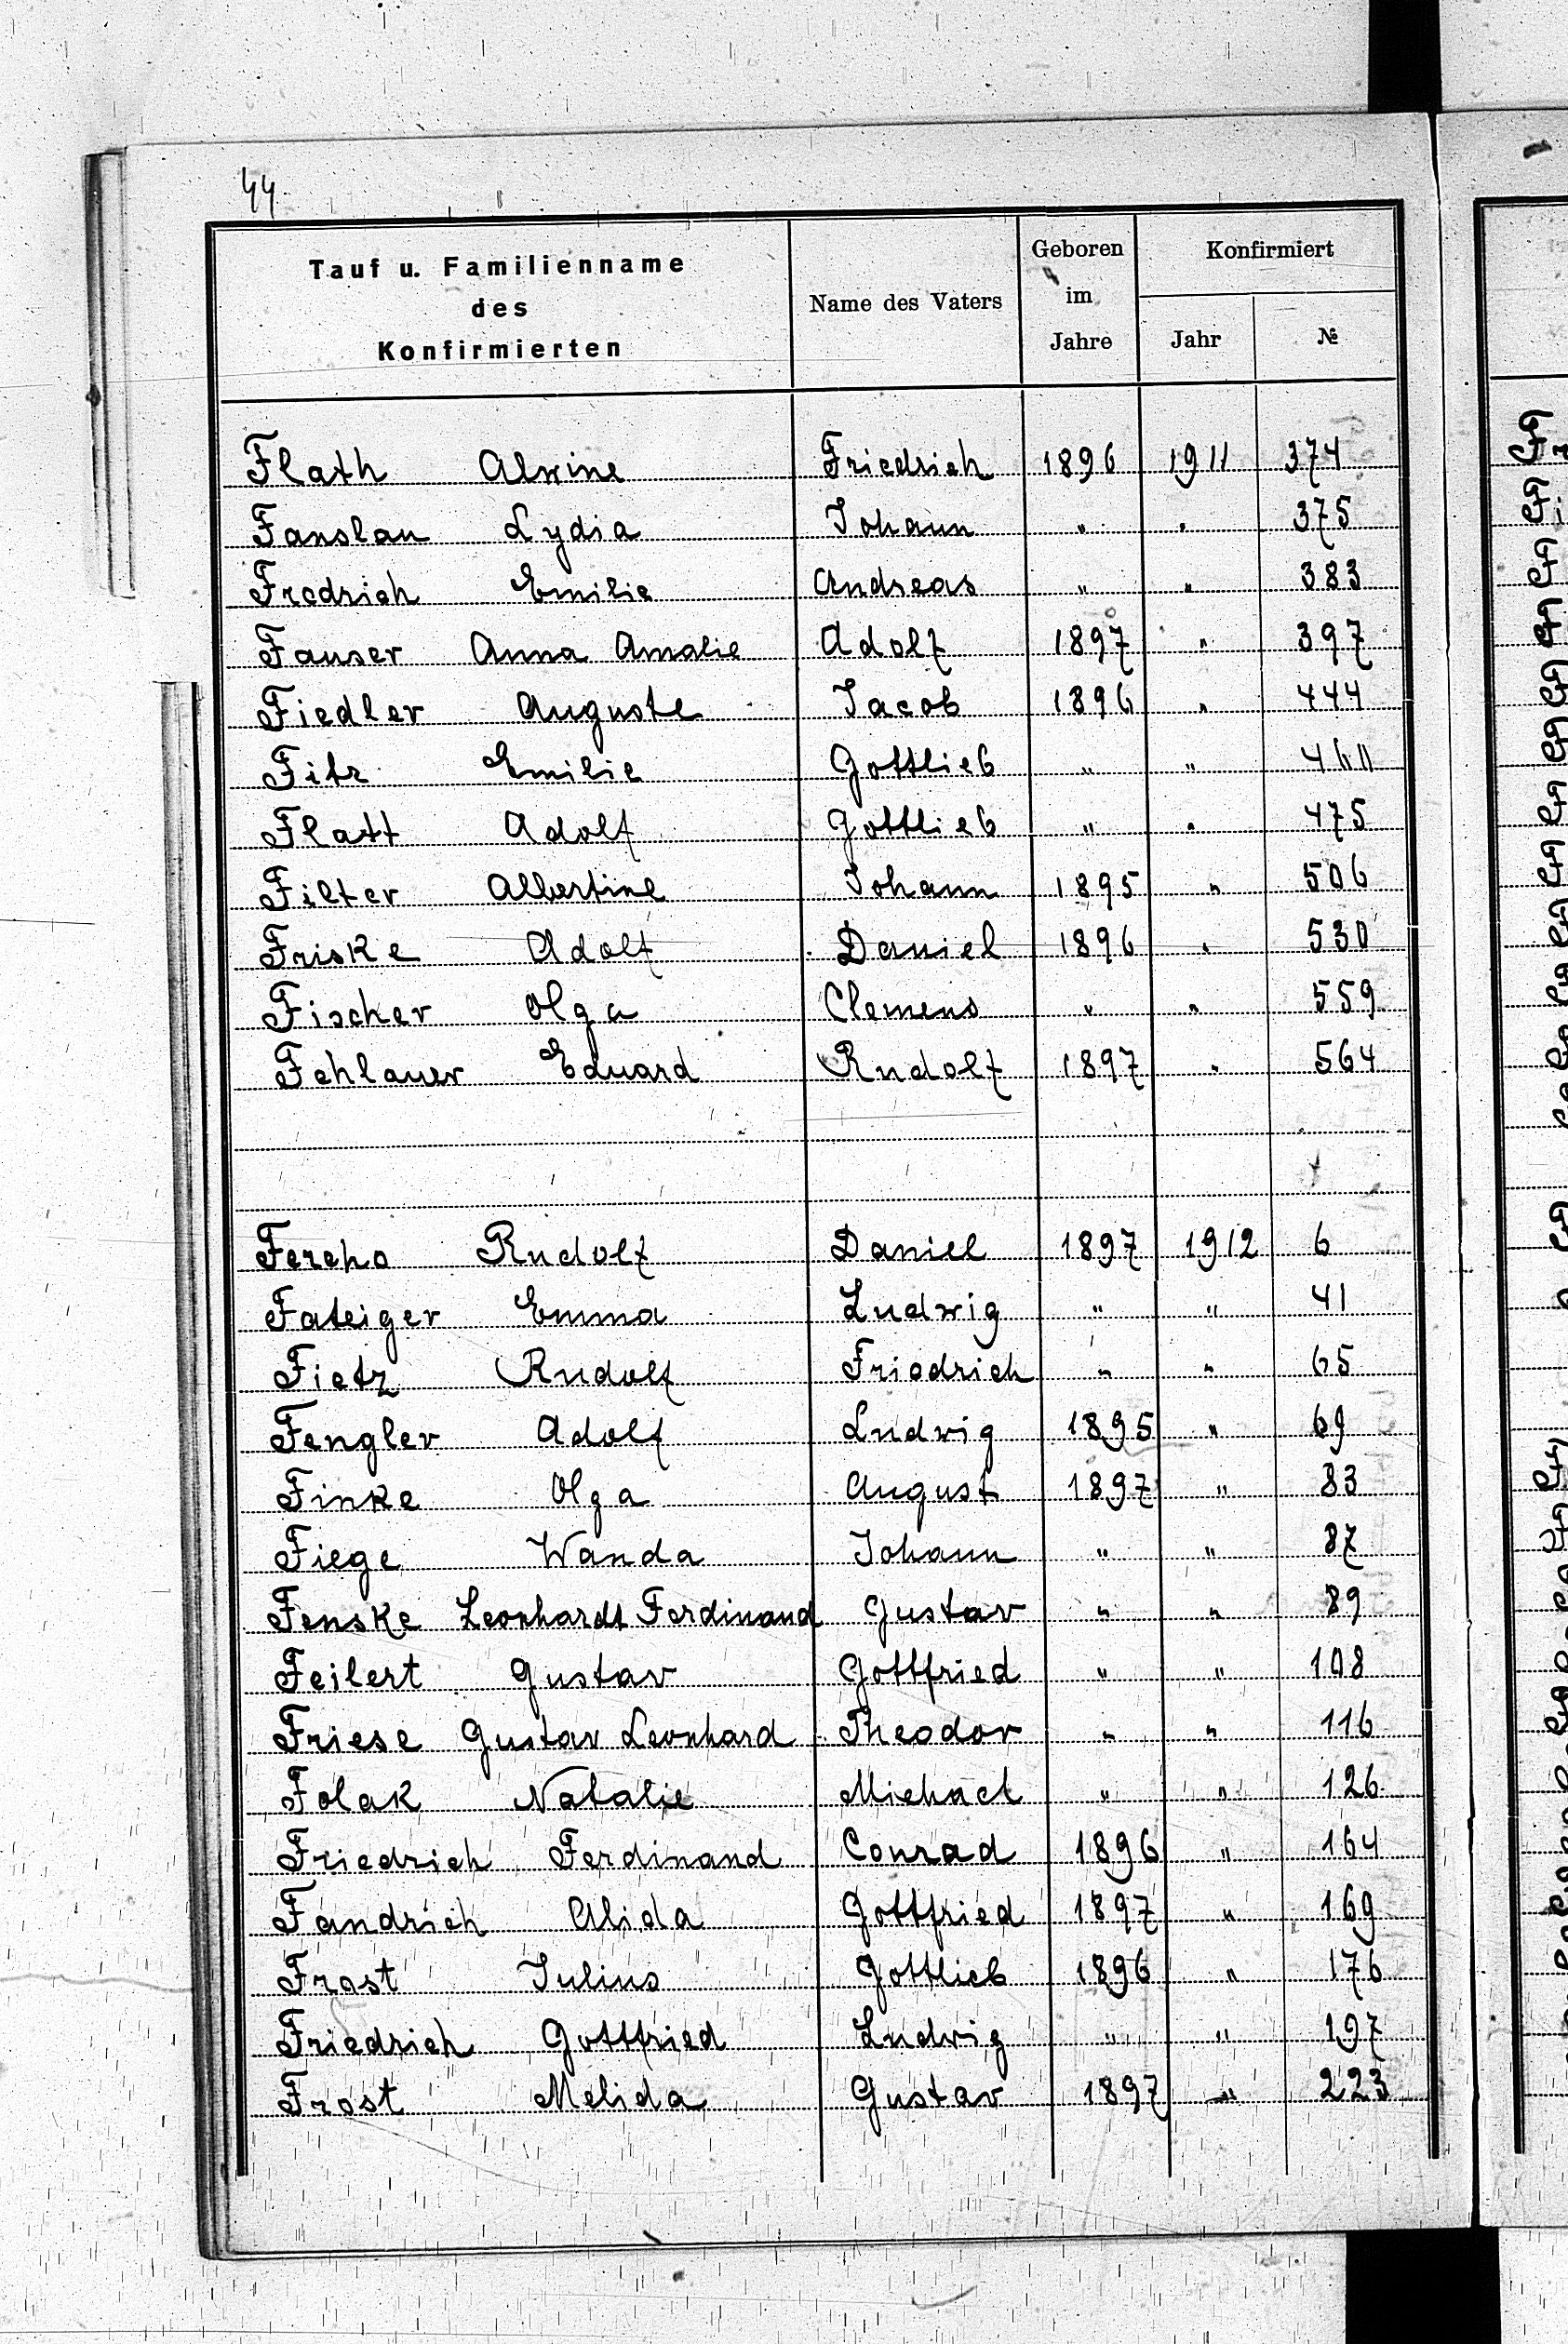 44
Tauf u. Familienname
des
Konfirmierten
Name des Vaters
Geboren
im
Jahre
Konfirmiert
Jahr
№
Flath Alwine Friedrich 1896 1911 374
Fanslau Lydia Johann " " 375
Fredrich Emilie Andreas " " 383
Fauser Anna Amalie Adolf 1897 " 397
Fiedler Auguste Jacob 1896 " 444
Fitz Emilie Gottlieb " "
Flatt Adolf Gottlieb " " 475
Filter Albertine Johann 1895 " 506
Friske Adolf Daniel 1896 " 530
Fischer Olga Clemens " " 559
Fehlauer Eduard Rudolf 1897 " 564
Fercho Rudolf Daniel 1897 1912 6
Fateiger Emma Ludwig " " 41
Fietz Rudolf Friedrich " " 65
Fengler Adolf Ludwig 1895 " 69
Finke Olga August 1897 " 83
Fiege Wanda Johann " " 87
Fenske Leonhardt Ferdinand Gustav " " 89
Feilert Gustav Gottfried " " 108
Friese Gustav Leonhard Theodor " " 116
Folak Natalie Michael " " 126
Friedrich Ferdinand Conrad 1896 " 164
Fandrich Alida Gottfried 1897 " 169
Frost Julius Gottlieb 1896 " 176
Friedrich Gottfried Ludwig " " 197
Frost Melida Gustav 1897 " 223